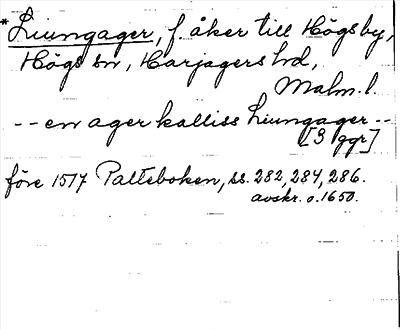 *Liungager, f. åker till Högsby,
Högs sn, Harjagers hd,
Malm. l.
-- en ager kalliss Liungager --
[3 ggr]
före 1517 Palteboken, ss. 282, 284, 286.
avskr. o. 1650.